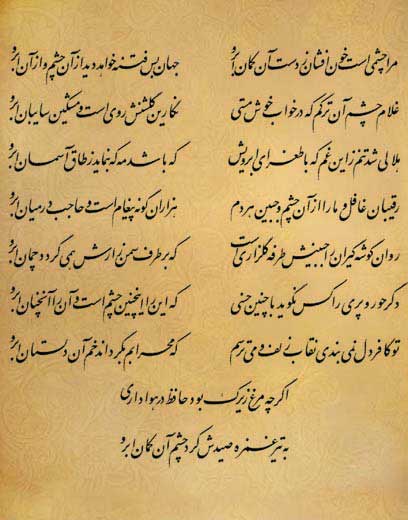 مرا چشمی است خون افشان ز دست آن کمان ابرو جهان بس فتنه خواهد دید از آن چشم و از آن ابرو
غلام چشم آن ترکم که در خواب خوش مستی نگارین گلشنش روی است و مشکین سایبان ابرو
هلالی شد تنم زاین غم که با طغرای ابرویش که باشد مه که بنماید ز طاق آسمان ابرو
رقیبان غافل و ما را از آن چشم و جبین هر دم هزاران گونه پیغام است و حاجب در میان ابرو
روان گوشه گیران را جبینش طرفه گلزاری است که بر طرف سمن زارش همی گردد چمان ابرو
دگر حور و پری را کس نگوید با چنین حسنی که این را اینچنین چشم است و آن را آنچنان ابرو
تو کافر دل نمی بندی نقاب زلف و می ترسم که محرابم بگرداند خم آن دلستان ابرو
اگر چه مرغ زیرک بود حافظ در هواداری
به تیر غمزه صیدش کرد چشم آن کمان ابرو